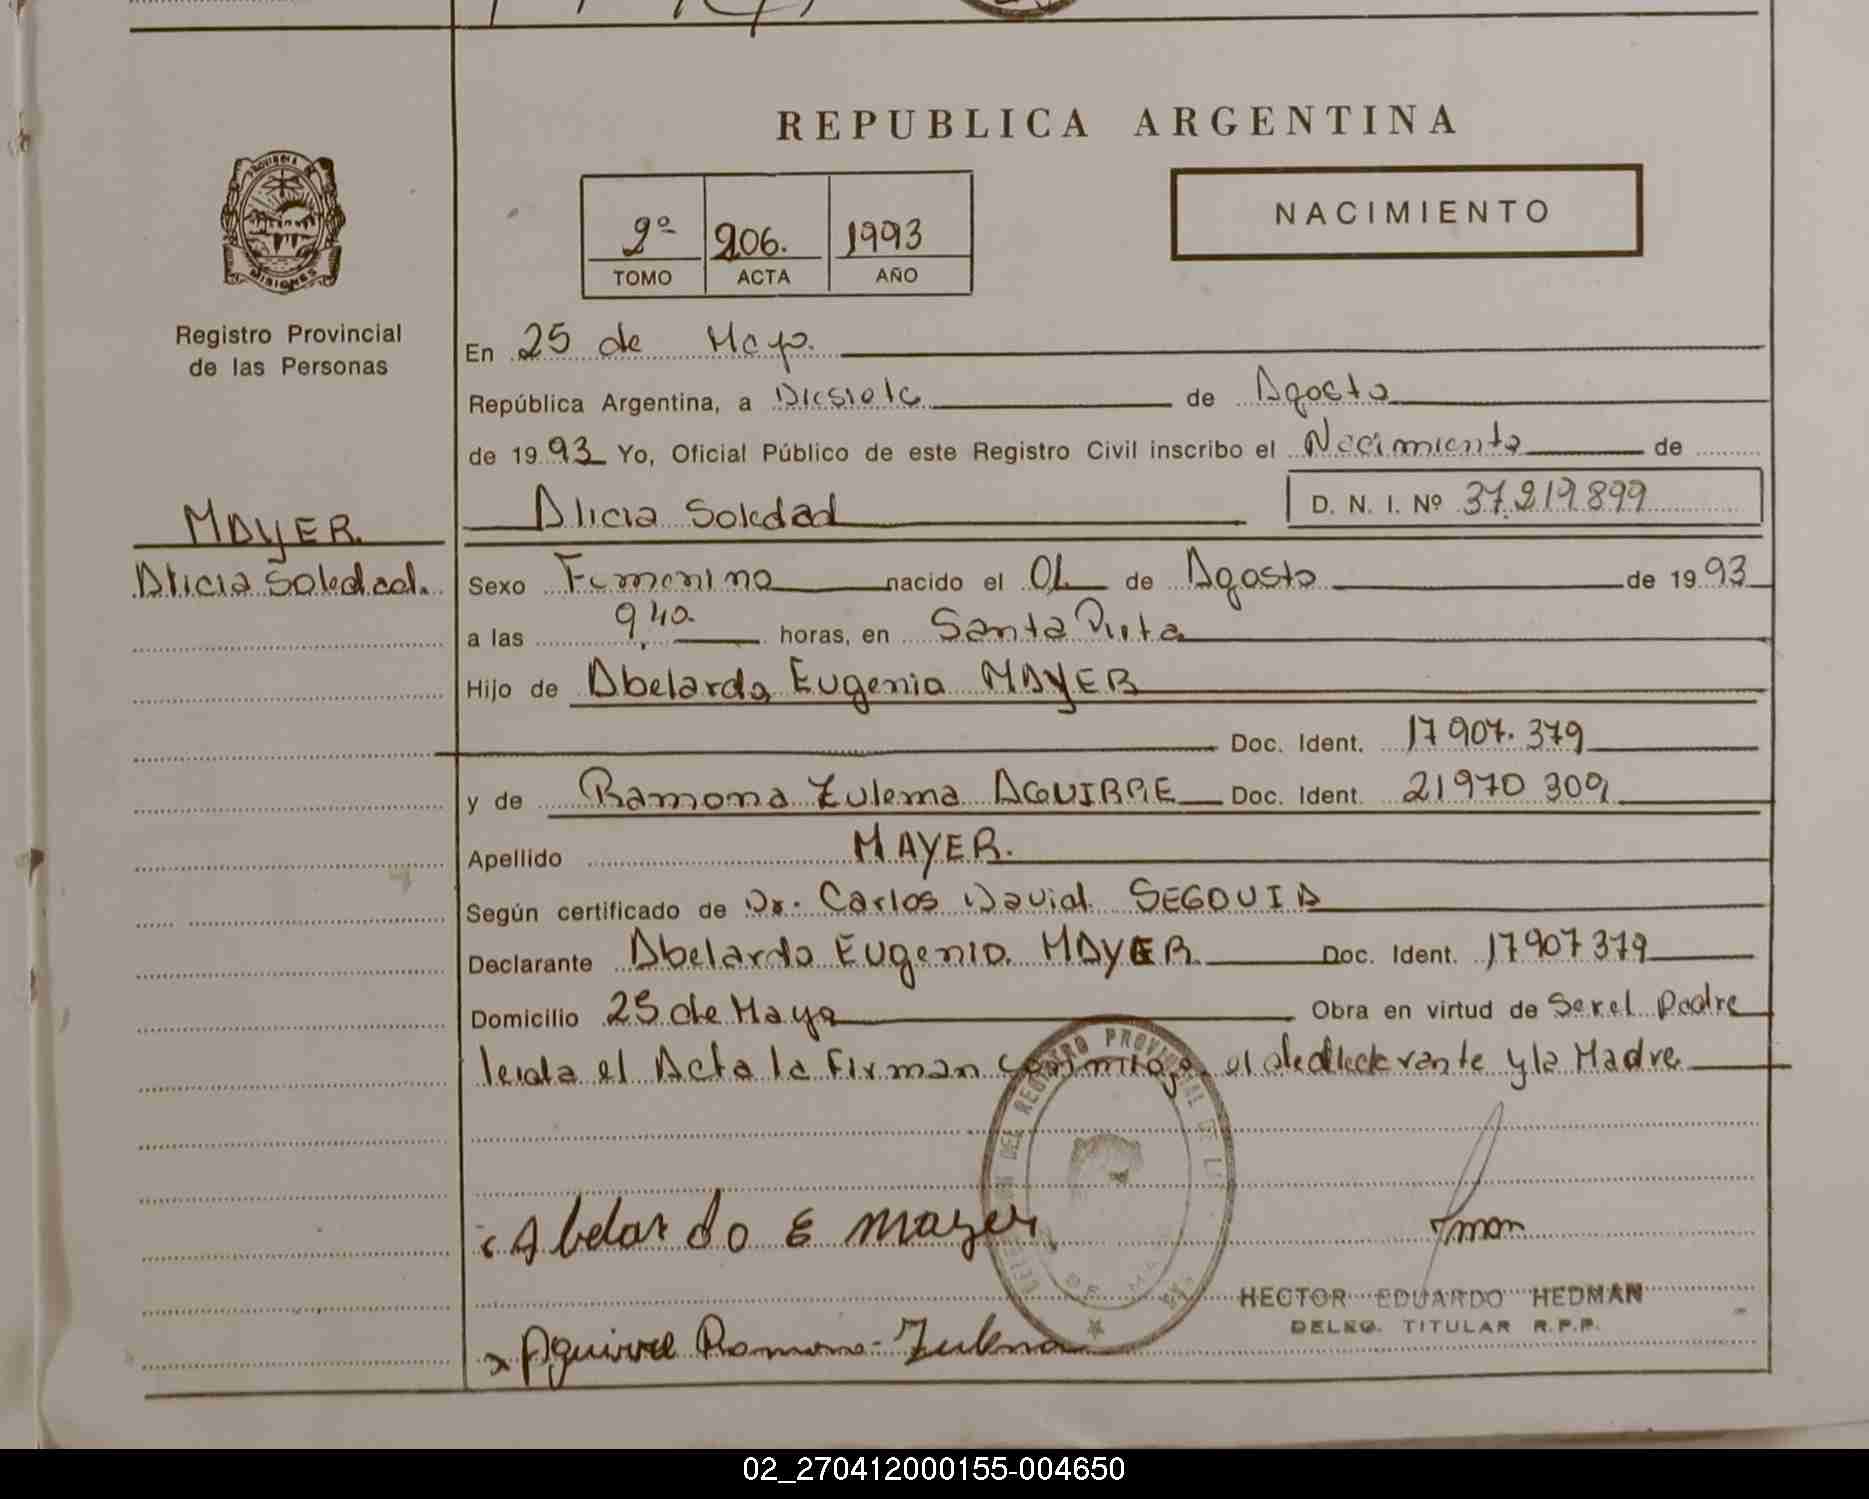 REPUBLICA ARGENTINA
PROVINCIA DE
MISIONES
Registro Provincial
de las Personas
2º 206. 1993
TOMO ACTA AÑO
NACIMIENTO
En 25 de Mayo.
República Argentina, a Diesiete de Agosto
de 1993 Yo, Oficial Público de este Registro Civil inscribo el Nacimiento de
Alicia Soledad D. N. I. Nº 37.219.899
MAYER.
Alicia Soledad.
Sexo Femenino nacido el 01 de Agosto de 1993
a las 9,40. horas, en Santa Rita
Hijo de Abelardo Eugenio MAYER
Doc. Ident. 17907.379
y de Ramona Zulema AGUIRRE Doc. Ident. 21970 309
Apellido MAYER.
Según certificado de Dr. Carlos David SEGOVIA
Declarante Abelardo Eugenio MAYER Doc. Ident. 17907379
Domicilio 25 de Mayo Obra en virtud de Ser el Padre
leida el Acta la Firman conmitgo el declarante y la Madre
Abelardo E mayer
HECTOR EDUARDO HEDMAN
DELEG. TITULAR R.P.P.
Aguirre Ramona Zulema
02_270412000155-004650